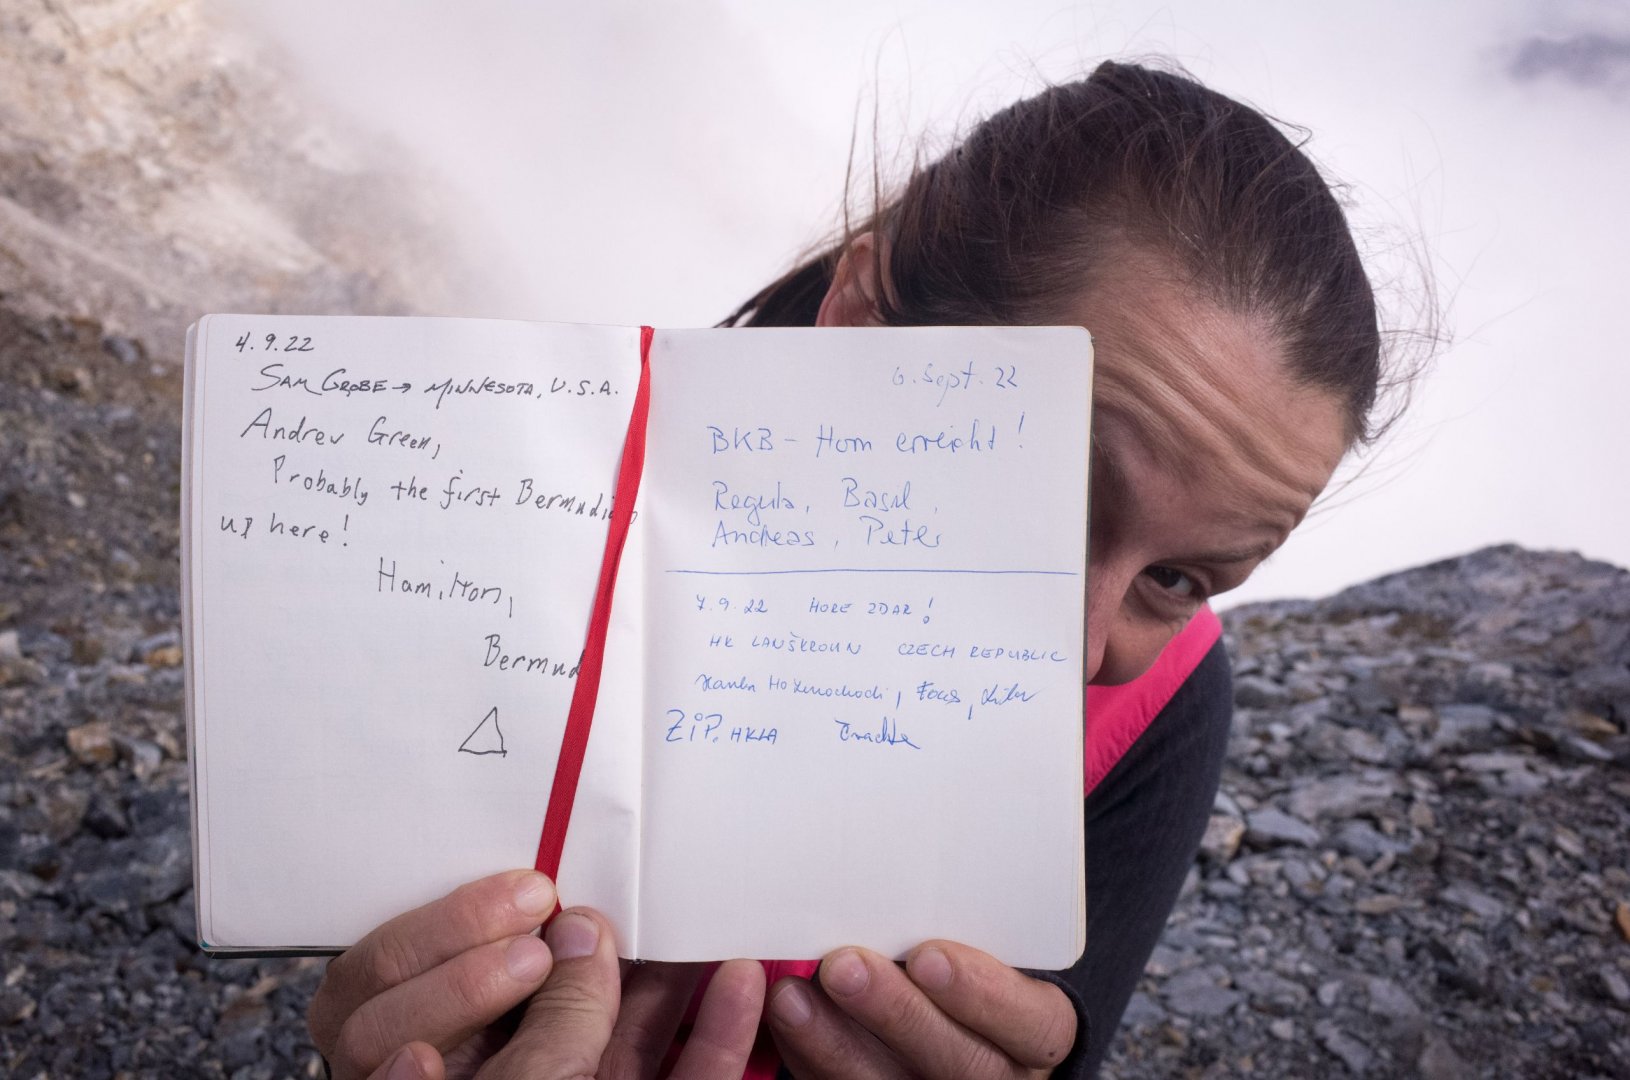 4.9.22
SAM GROBE → MINNESOTA, U.S.A.
Andrew Green,
Probably the first
up here!
Hamilton,
Bermud
6. Sept. 22
BKB - Horn erreicht!
Regula, Basil,
Andreas, Peter
7.9.22 HORE ZDAR!
HK LANŠKROUN CZECH REPUBLIC
ZiP. HKLA